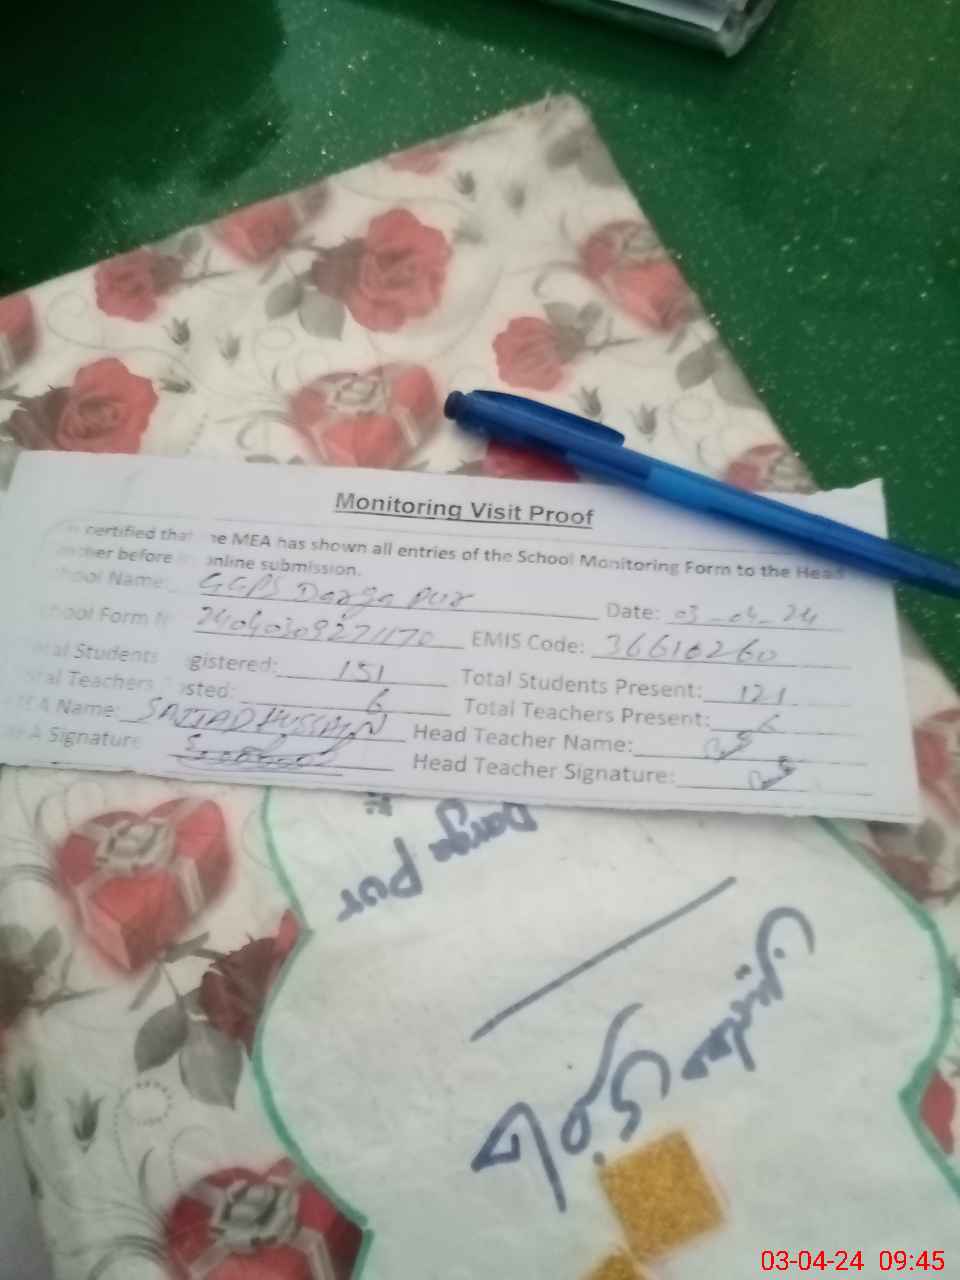 Monitoring Visit Proof
certified that MEA has shown all entries of the School Monitoring Form to the Head
before online submission.
School Name: GGPS Darga pur Date: 03-04-24
School Form EMIS Code: 36610260
Total Students Registered: 151 Total Students Present: 121
Total Teachers Posted: 6 Total Teachers Present: 6
MEA Name: SAJJAD HUSSAIN Head Teacher Name:
MEA Signature Head Teacher Signature:
Darga pur
03-04-24 09:45